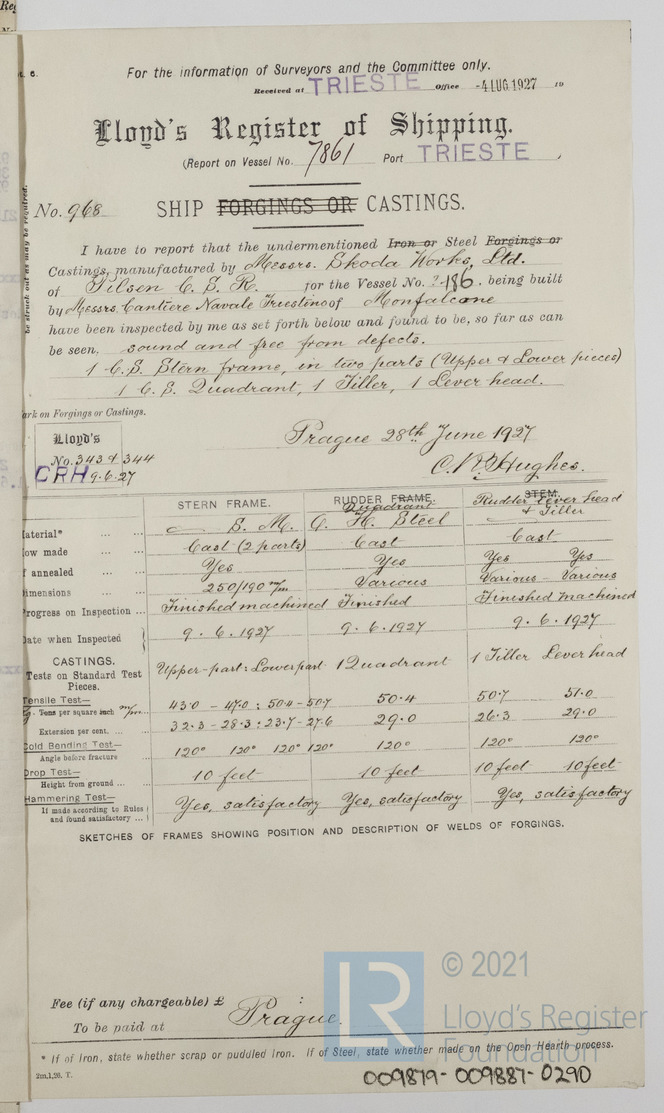 For the information of Surveyors and the Committee only.
Received at TRIESTE Office -4 LUG.1927 19
Lloyd's Register of Shipping.
(Report on Vessel No. 7861 Port TRIESTE
No. 968 SHIP FORGINGS OR CASTINGS.
I have to report that the undermentioned Iron or Steel Forgings or
Castings, manufactured by Messrs. Skoda Works, Ltd.
of Pilsen C. S. R. for the Vessel No. 186. being built
by Messrs. Cantiere Navale Triestino of Monfalcone
have been inspected by me as set forth below and found to be, so far as can
be seen, sound and free from defects.
1 C.S. Stern frame, in two parts (Upper & Lower pieces)
1 C.S. Quadrant, 1 Tiller, 1 Lever head.
be struck out as may be required.
ark on Forgings or Castings.
Lloyd's
No. 343 & 344
CRH 9.6.27
Prague 28th June 1927
C.R. Hughes.
STERN FRAME. RUDDER FRAME. Quadrant STEM. Rudder Lever head & Tiller
aterial* S. M. O. H. Steel
ow made Cast (2 parts) Cast Cast
f annealed Yes Yes Yes Yes
imensions 250/190 m/m Various Various - Various
rogress on Inspection Finished machined Finished Finished machined
ate when Inspected 9.6.1927 9.6.1927 9.6.1927
CASTINGS.
Tests on Standard Test Pieces. Upper-part: Lower part 1 Quadrant 1 Tiller Lever head
Tensile Test—
Tons per square inch m/m 43.0 - 47.0 : 50.4 - 50.7 50.4 50.7 51.0
Extension per cent. 32.3 - 28.3 : 23.7 - 27.6 29.0 26.3 29.0
Cold Bending Test—
Angle before fracture 120° 120° 120° 120° 120° 120° 120°
Drop Test—
Height from ground 10 feet 10 feet 10 feet 10 feet
Hammering Test—
If made according to Rules and found satisfactory Yes, satisfactory Yes, satisfactory Yes, satisfactory
SKETCHES OF FRAMES SHOWING POSITION AND DESCRIPTION OF WELDS OF FORGINGS.
Fee (if any chargeable) £ :
To be paid at Prague.
* If of Iron, state whether scrap or puddled Iron. If of Steel, state whether made on the Open Hearth process.
2m,1,26. T.
LR © 2021
Lloyd's Register
Foundation
009879-009887-0290